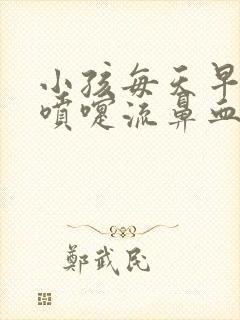 小孩每天早
噴嚏流鼻血
鄭武民